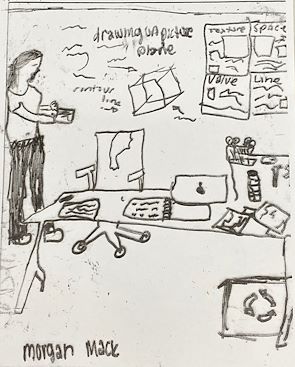 drawing on picture
plane
contour
line
Texture
Space
Value
Line
morgan Mack